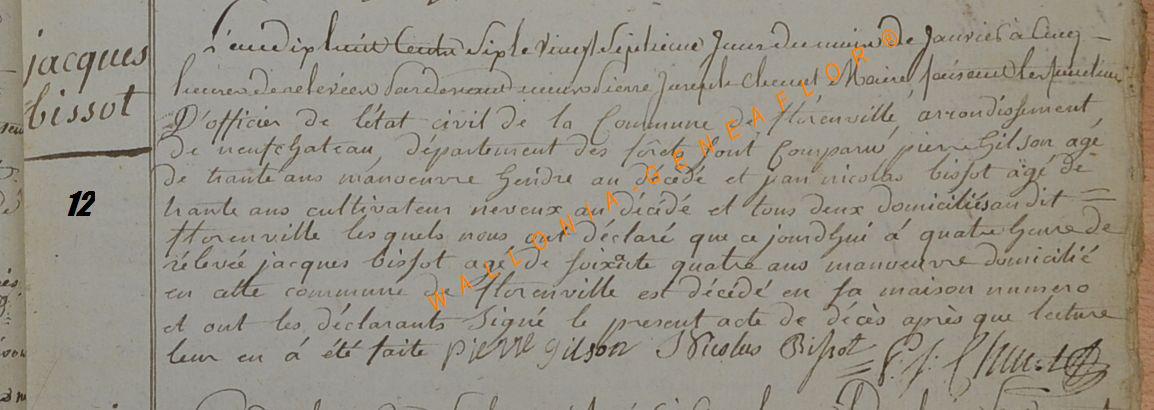 jacques
bissot
12
L'an dix huit cent six le vingt septieme jour du mois de Janvier à cinq
heures de relevée pardevant nous pierre Joseph Maire faisant les fonctions
D'officier de l'état civil de la Commune de florenville, arrondissement
de neufchateau, département des forêts sont Comparu pierre Gilson agé
de trante ans manoeuvre Gendre au décédé et jean nicolas bissot agé de
trante ans cultivateur neveux au décédé et tous deux domiciliés audit
florenville lesquels nous ont déclaré que ce jourdhui á quatre heure de
rélevée jacques bissot agé de soixante quatre ans manoeuvre domicilié
en cette commune de florenville est décédé en sa maison numero
et ont les déclarants Signé le present acte de décès après que lecture
leur en á été faite pierre Gilson Nicolas Bissot P. J.
WALLONIA-GENEAFLOR ®